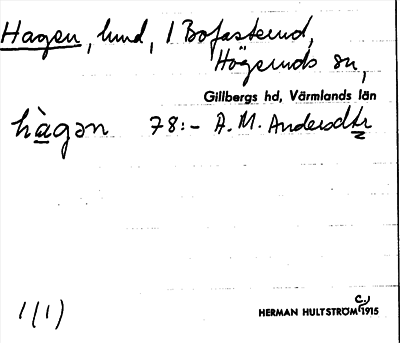 Hagen, lund, 1 Bofasterud,
Högeruds sn,
Gillbergs hd, Värmlands län
hàgən 78:- A. M. Andersdtr
1(1)
c.
HERMAN HULTSTRÖM 1915